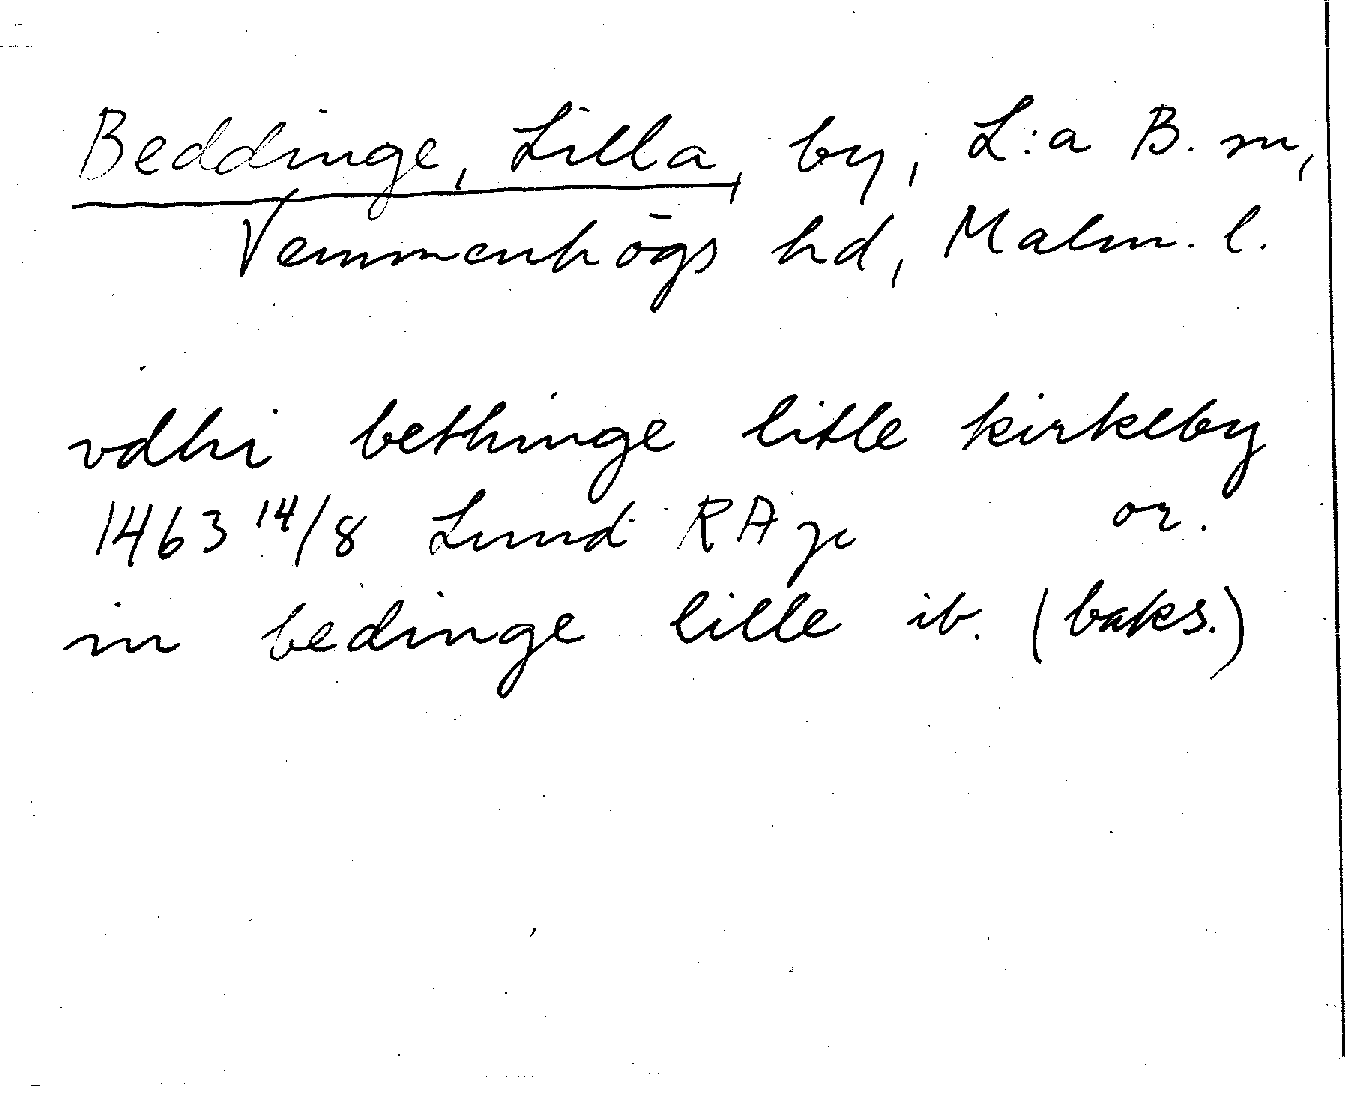 Beddinge, Lilla, by, L:a B. sn,
Vemmenhögs hd, Malm. l.
vdhi bethinge litle kirkeby
1463 14/8 Lund RA p or.
in bedinge lille ib. (baks.)